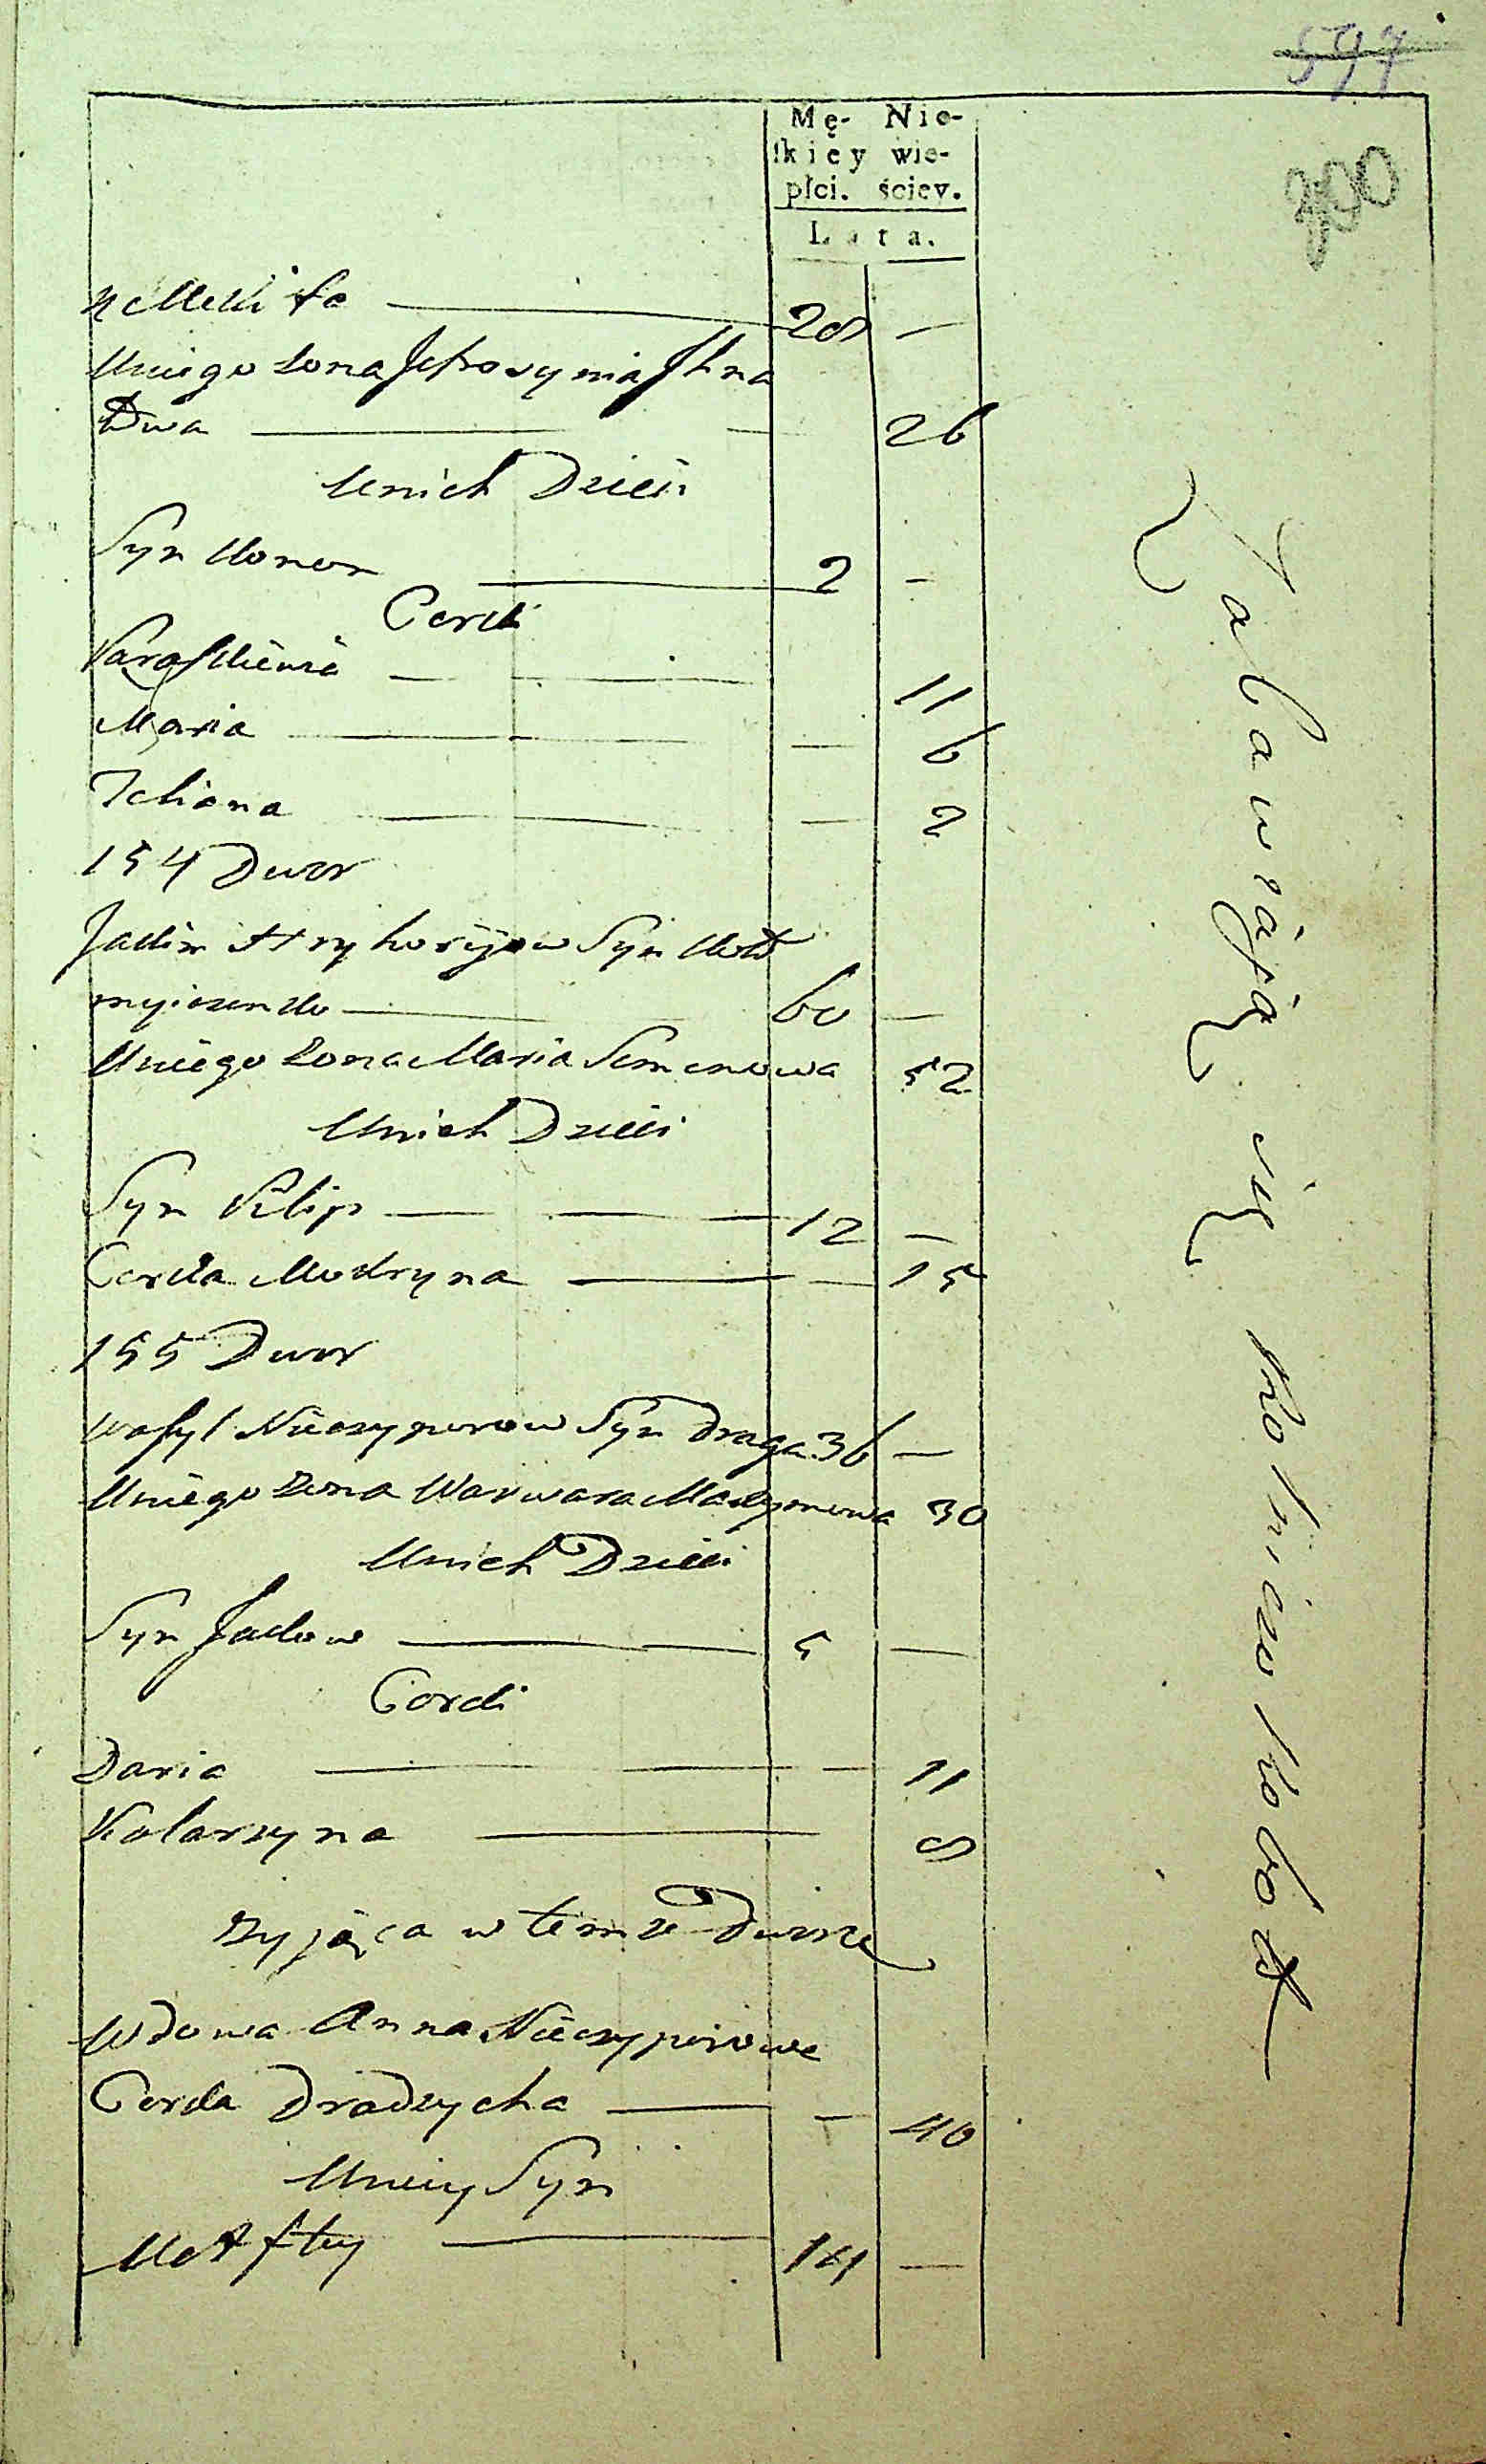 597
400
Mę- Nie-
ſkiey wie-
płci. ściey.
Lata.
Mekita 28 —
Uniego Zona Jefrosynia Ihna
towa — 26
Unich Dzieci
Syn Konon 2 —
Corki
Paraskiewia — 11
Maria — 6
Teliana — 2
154 Dwor
Jakim Hryhoryjow Syn Koło
myiczenko 60 —
Uniego Zona Maria Semenowa 52
Unich Dzieci
Syn Pilip 12 —
Corka Motryna — 15
155 Dwor
Wasyl Nieczyporow Syn Draga 36 —
Uniego Zona Warwara Maxymowa 30
Unich Dzieci
Syn Jakow 5 —
Corki
Daria — 11
Katarzyna 8
Zyjąca w temze Dworze
Wdowa Anna Nieczyporowa
Corka Dradzycha — 40
Uniey Syn
14 —
Zabawiają się rolniczo robotą